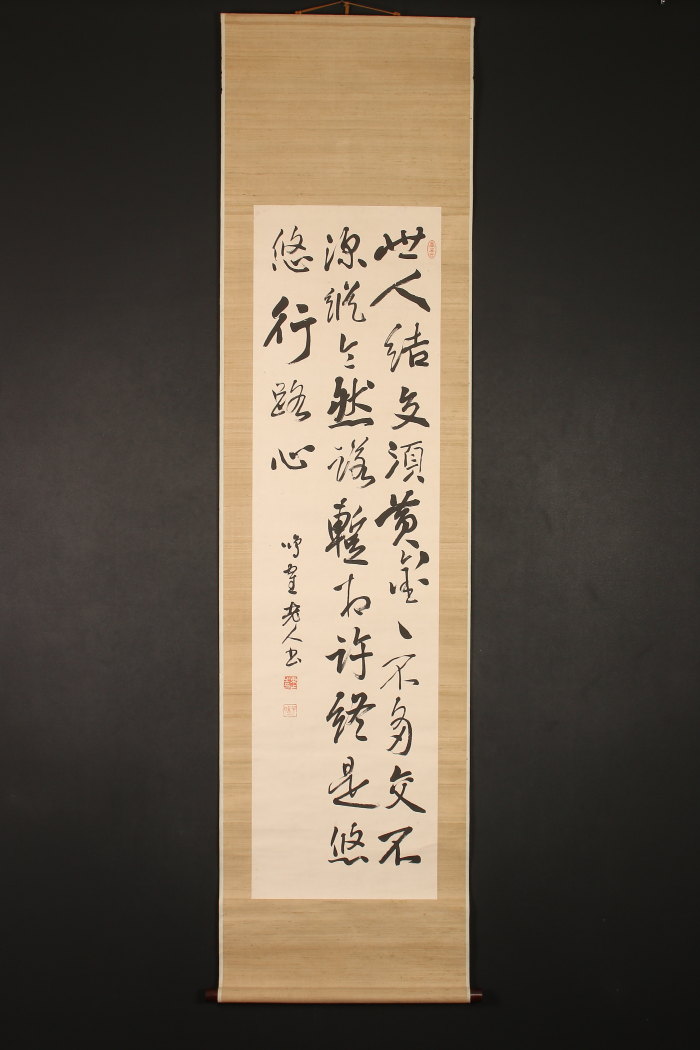 世人結交須黄金〻不多交不
深縱令然諾暫相許終是悠
悠行路心
鳴寉老人書